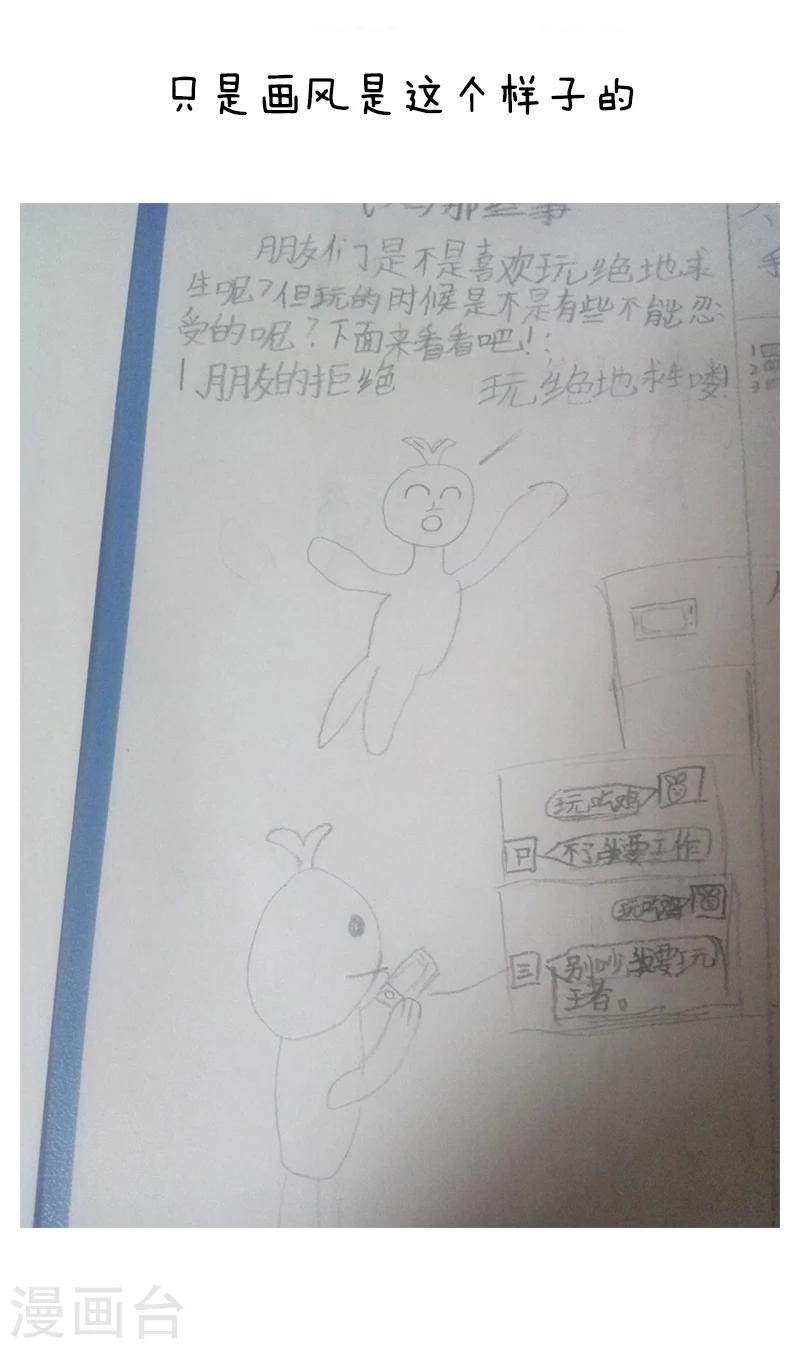 只是画风是这个样子的
那些事
朋友们是不是喜欢玩绝地求
生呢?但玩的时候是不是有些不能忍
受的呢?下面来看看吧!:
1、朋友的拒绝
玩绝地求生喽!
1
2
3
玩吃鸡
不了我要工作
玩吃鸡
别吵,我要玩
王者。
漫画台